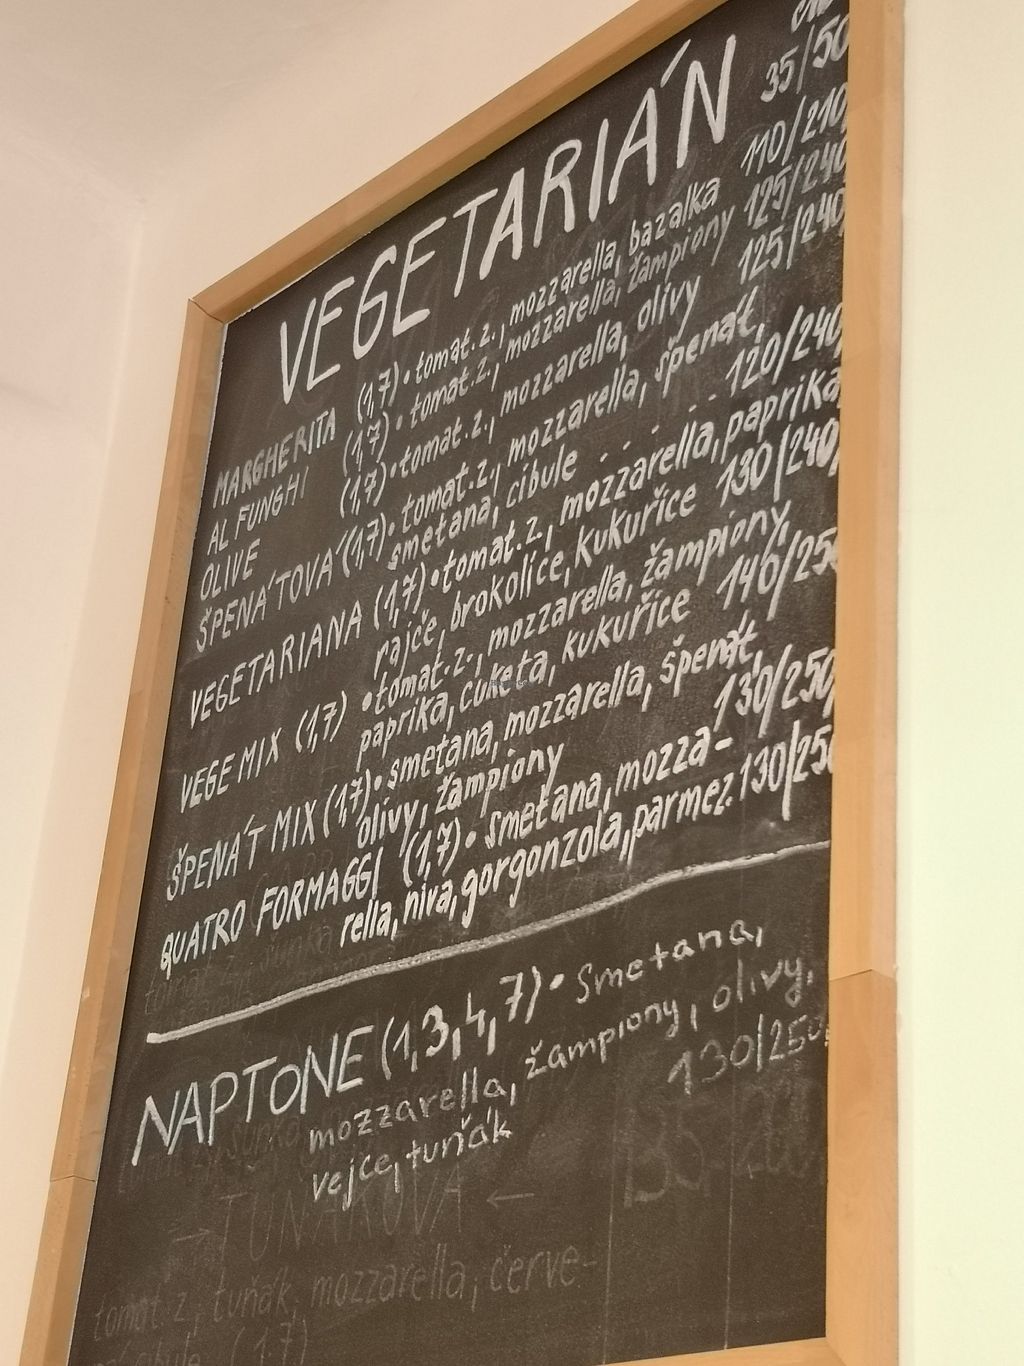 35/50
VEGETARIÁN
MARGHERITA (1,7) • tomat.z., mozzarella, bazalka 110/210
AL FUNGHI (1,7) • tomat.z., mozzarella, žampiony 125/240
OLIVE (1,7) • tomat.z., mozzarella, olivy 125/240
ŠPENÁTOVÁ (1,7) • tomat.z., mozzarella, špenát,
smetana, cibule . . . . . 120/240
VEGETARIANA (1,7) • tomat.z., mozzarella, paprika,
rajče, brokolice, kukuřice 130/240
VEGE MIX (1,7) • tomat.z., mozzarella, žampiony,
paprika, cuketa, kukuřice 140/250
ŠPENÁT MIX (1,7) • smetana, mozzarella, špenát,
olivy, žampiony 130/250
QUATRO FORMAGGI (1,7) • smetana, mozza-
rella, niva, gorgonzola, parmez. 130/250
NAPTONE (1,3,4,7) • smetana,
mozzarella, žampiony, olivy,
vejce, tuňák 130/250
→ TUŇÁKOVÁ ←
tomat.z, tuňák, mozzarella, červe-
(1.7)